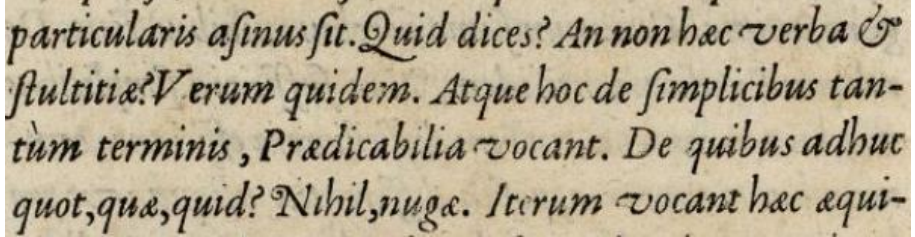 particularis aſinus ſit. Quid dices? An non hæc verba &
ſtultitiæ? Verum quidem. Atque hoc de ſimplicibus tan-
tùm terminis, Prædicabilia vocant. De quibus adhuc
quot, quæ, quid? Nihil, nugæ. Iterum vocant hæc æqui-